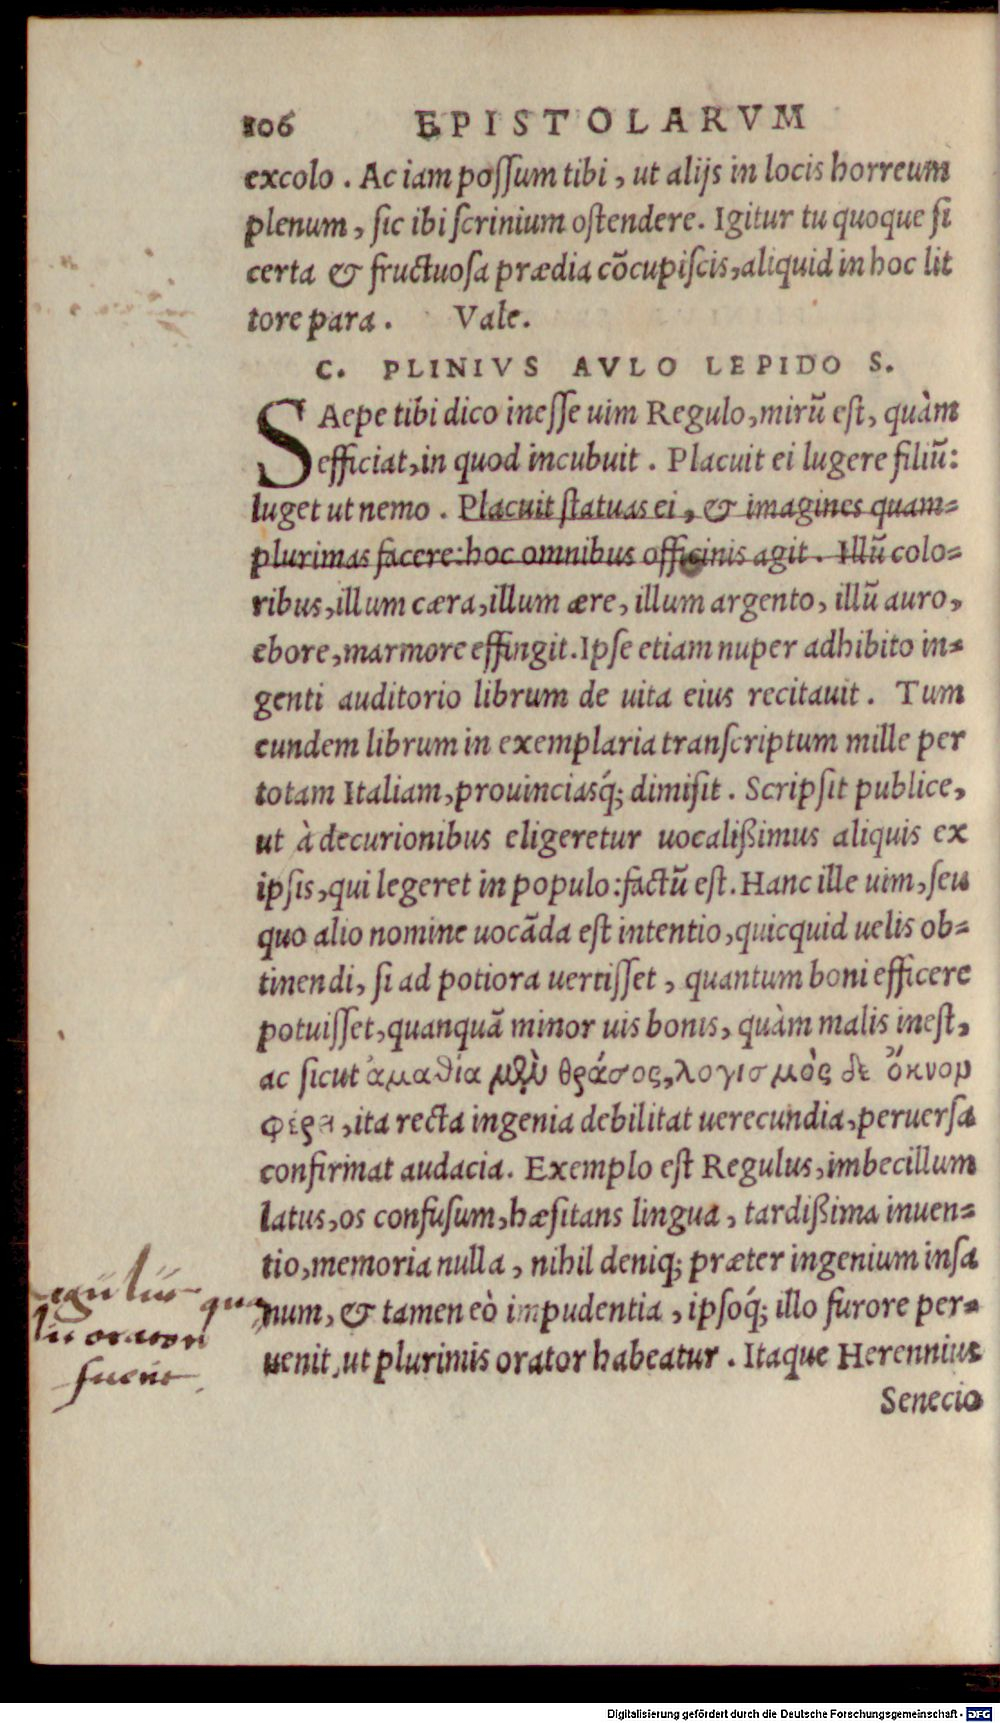 106 EPISTOLARVM
excolo. Ac iam possum tibi, ut alijs in locis horreum
plenum, sic ibi scrinium ostendere. Igitur tu quoque si
certa & fructuosa prædia cõcupiscis, aliquid in hoc lit
tore para. Vale.
C. PLINIVS AVLO LEPIDO S.
SAepe tibi dico inesse uim Regulo, mirũ est, quàm
efficiat, in quod incubuit. Placuit ei lugere filiũ:
luget ut nemo. Placuit statuas ei, & imagines quam-
plurimas facere: hoc omnibus officinis agit. Illũ colo-
ribus, illum cæra, illum ære, illum argento, illũ auro,
ebore, marmore effingit. Ipse etiam nuper adhibito in-
genti auditorio librum de uita eius recitauit. Tum
eundem librum in exemplaria transcriptum mille per
totam Italiam, prouinciasq́; dimisit. Scripsit publice,
ut à decurionibus eligeretur uocalißimus aliquis ex
ipsis, qui legeret in populo: factũ est. Hanc ille uim, seu
quo alio nomine uocãda est intentio, quicquid uelis ob-
tinendi, si ad potiora uertisset, quantum boni efficere
potuisset, quanquã minor uis bonis, quàm malis inest,
ac sicut ἀμαθία μὲν θράσος, λογισμὸς δὲ ὄκνον
φέρει, ita recta ingenia debilitat uerecundia, peruersa
confirmat audacia. Exemplo est Regulus, imbecillum
latus, os confusum, hæsitans lingua, tardißima inuen-
tio, memoria nulla, nihil deniq; præter ingenium insa
num, & tamen eò impudentia, ipsoq́; illo furore per-
uenit, ut plurimis orator habeatur. Itaque Herennius
Senecio
qua
lis orator
fuerit
Digitalisierung gefördert durch die Deutsche Forschungsgemeinschaft - DFG